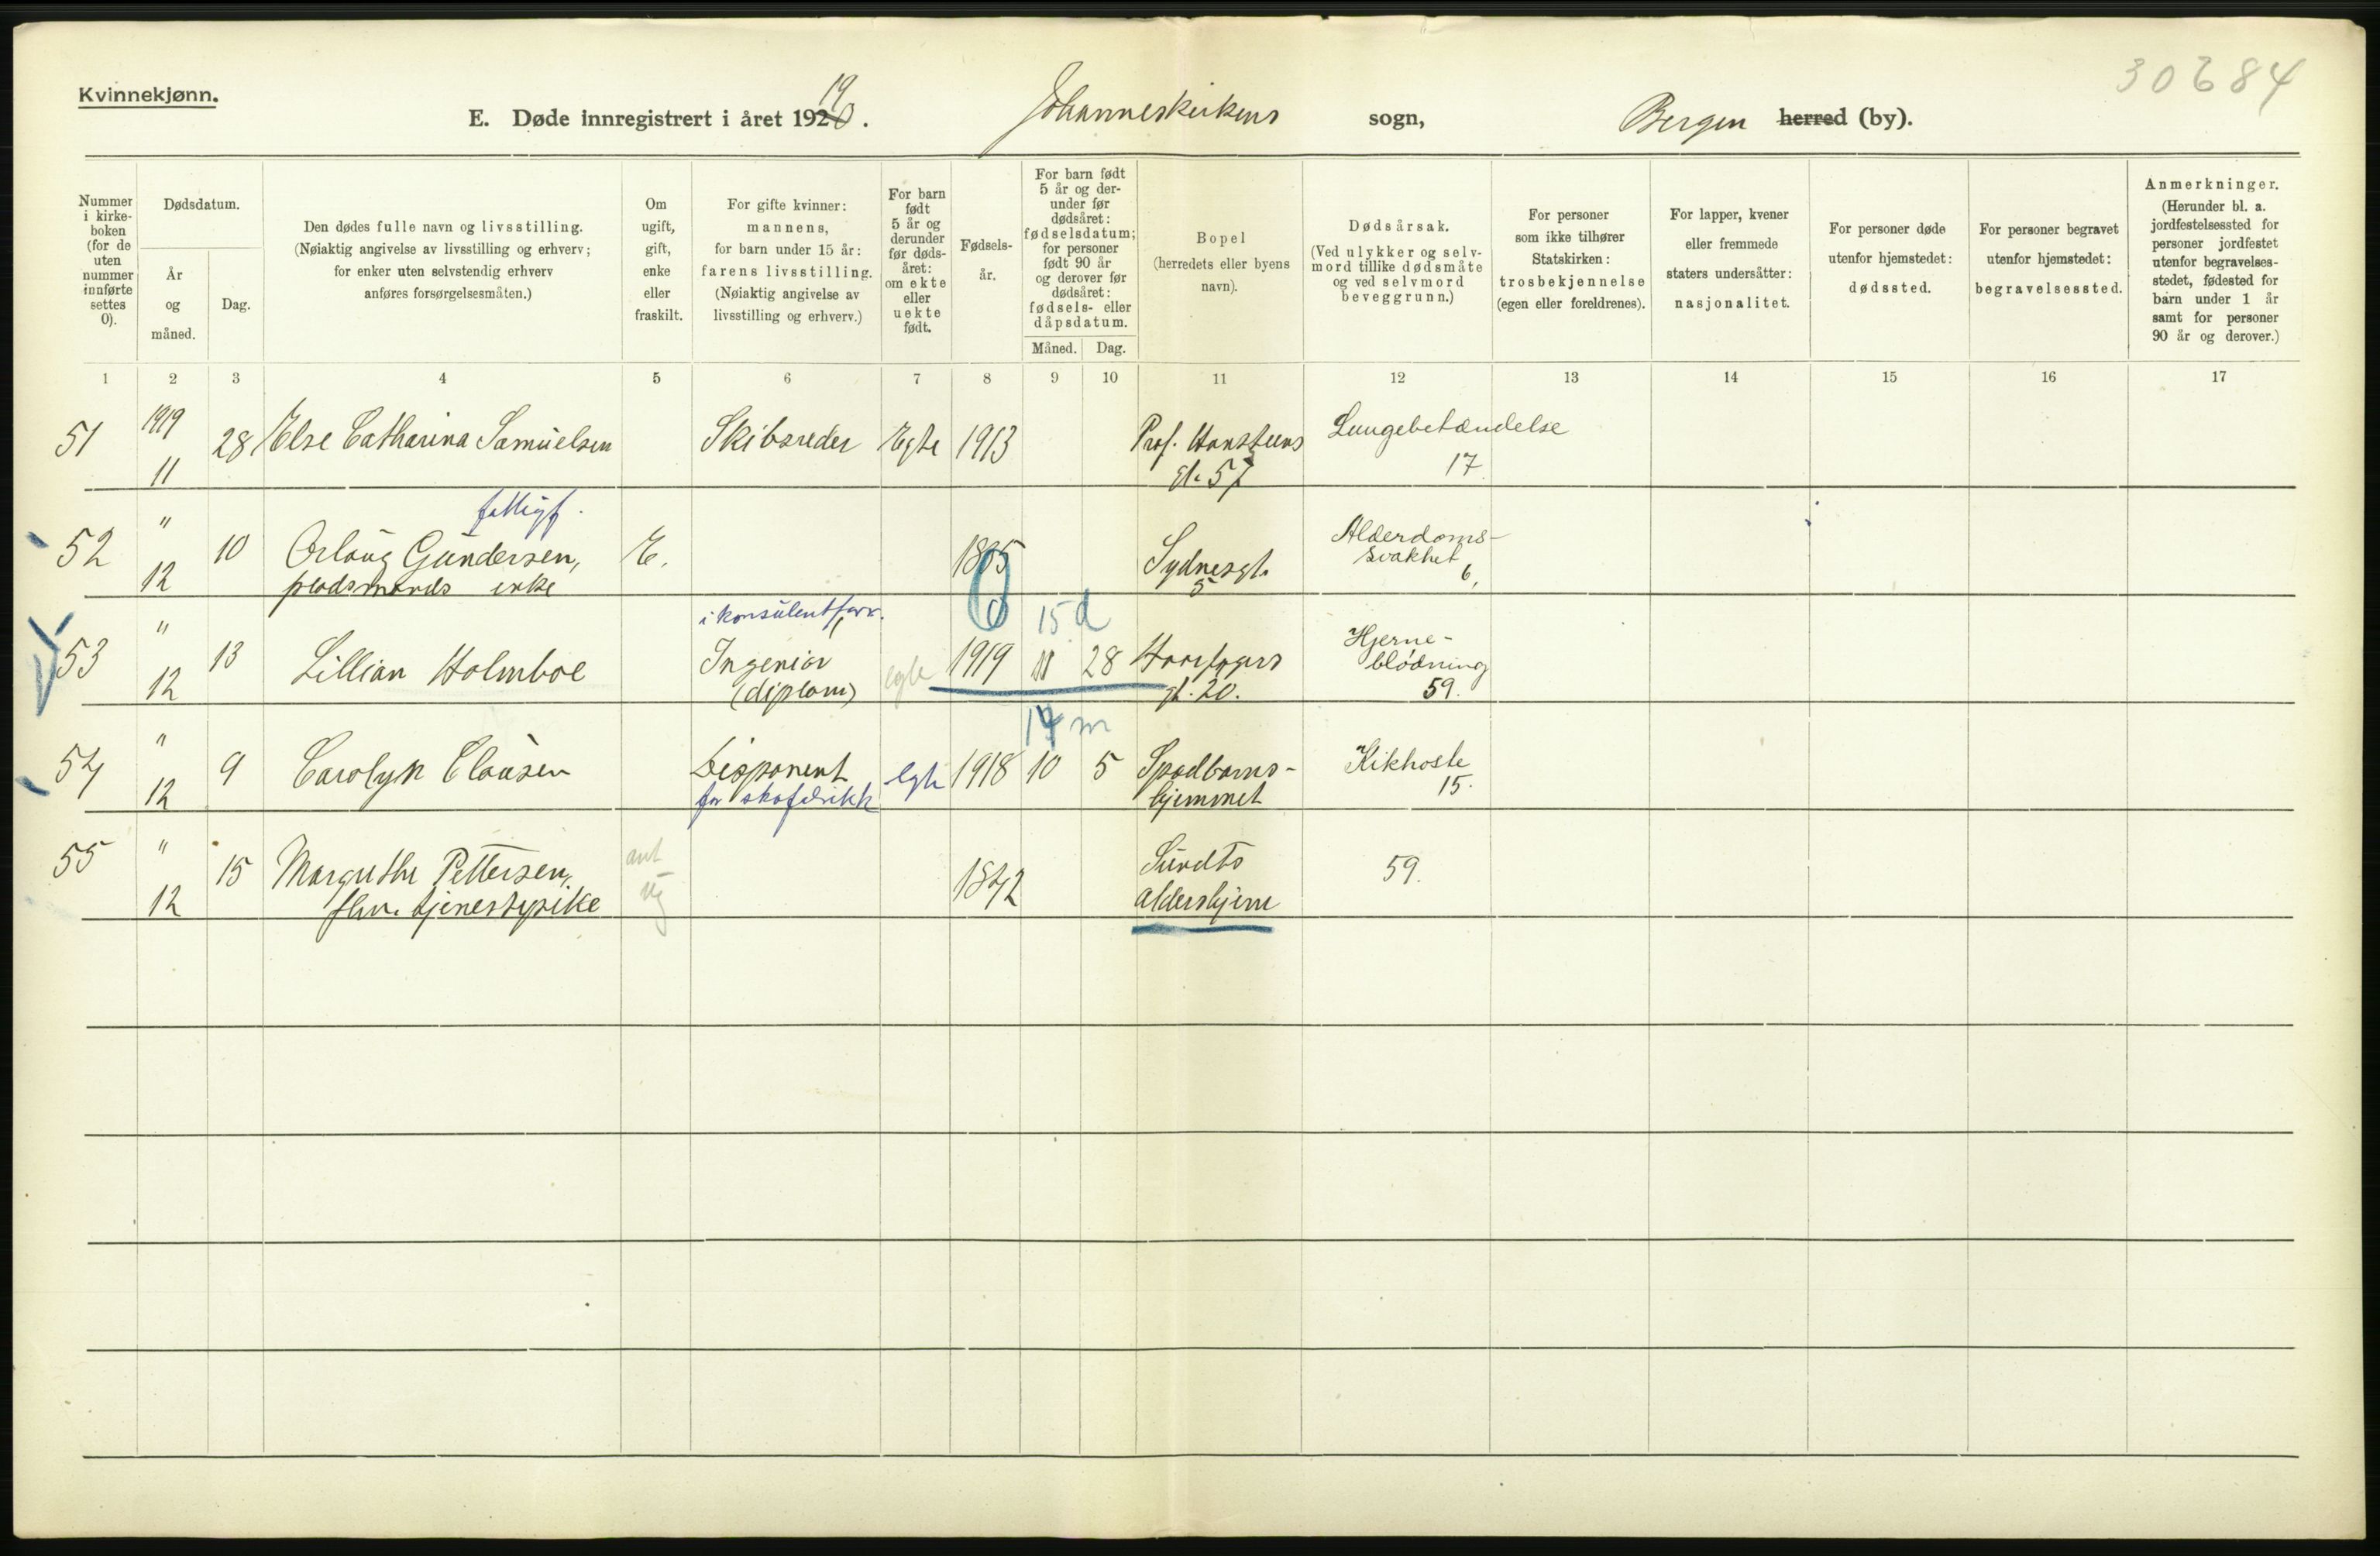 30684
Kvinnekjønn.
E. Døde innregistrert i året 1920. 19 Johanneskirkens sogn, Bergen herred (by).
Nummer i kirkeboken (for de uten nummer innførte settes 0).
Dødsdatum.
År og måned.
Dag.
Den dødes fulle navn og livsstilling.
(Nøiaktig angivelse av livsstilling og erhverv;
for enker uten selvstendig erhverv
anføres forsørgelsesmåten.)
Om ugift, gift, enke eller fraskilt.
For gifte kvinner:
mannens,
for barn under 15 år:
farens livsstilling.
(Nøiaktig angivelse av
livsstilling og erhverv.)
For barn født 5 år og derunder før dødsåret: om ekte eller uekte født.
Fødselsår.
For barn født 5 år og derunder før dødsåret: fødselsdatum; for personer født 90 år og derover før dødsåret: fødsels- eller dåpsdatum.
Måned. Dag.
Bopel
(herredets eller byens
navn).
Dødsårsak.
(Ved ulykker og selvmord tillike dødsmåte og ved selvmord beveggrunn.)
For personer
som ikke tilhører
Statskirken:
trosbekjennelse
(egen eller foreldrenes).
For lapper, kvener
eller fremmede
staters undersåtter:
nasjonalitet.
For personer døde
utenfor hjemstedet:
dødssted.
For personer begravet
utenfor hjemstedet:
begravelsessted.
Anmerkninger.
(Herunder bl. a.
jordfestelsessted for
personer jordfestet
utenfor begravelses-
stedet, fødested for
barn under 1 år
samt for personer
90 år og derover.)
1 2 3 4 5 6 7 8 9 10 11 12 13 14 15 16 17
51 1919 11 28 Else Catharina Samuelsen Skibsreder Egte 1913 Prof. Hansteens gt. 57 Lungebetændelse 17.
fattigf.
52 " 12 10 Orlaug Gundersen, pladsmands enke E. 1835 Sydnesgt. 5 Alderdoms-svakhet 6,
i konsulentforr. 15 d
53 " 12 13 Lillian Holmboe Ingeniør (diplom) egte 1919 11 28 gt. 20. Hjerne-blødning 59.
14 m
54 " 12 9 Carolyn Clausen Disponent for skofabrikk egte 1918 10 5 Spædbarns-hjemmet Kikhoste 15.
55 " 12 15 Margrethe Pettersen, fhv. tjenestepike ant ug 1842 Sundts aldershjem 59.